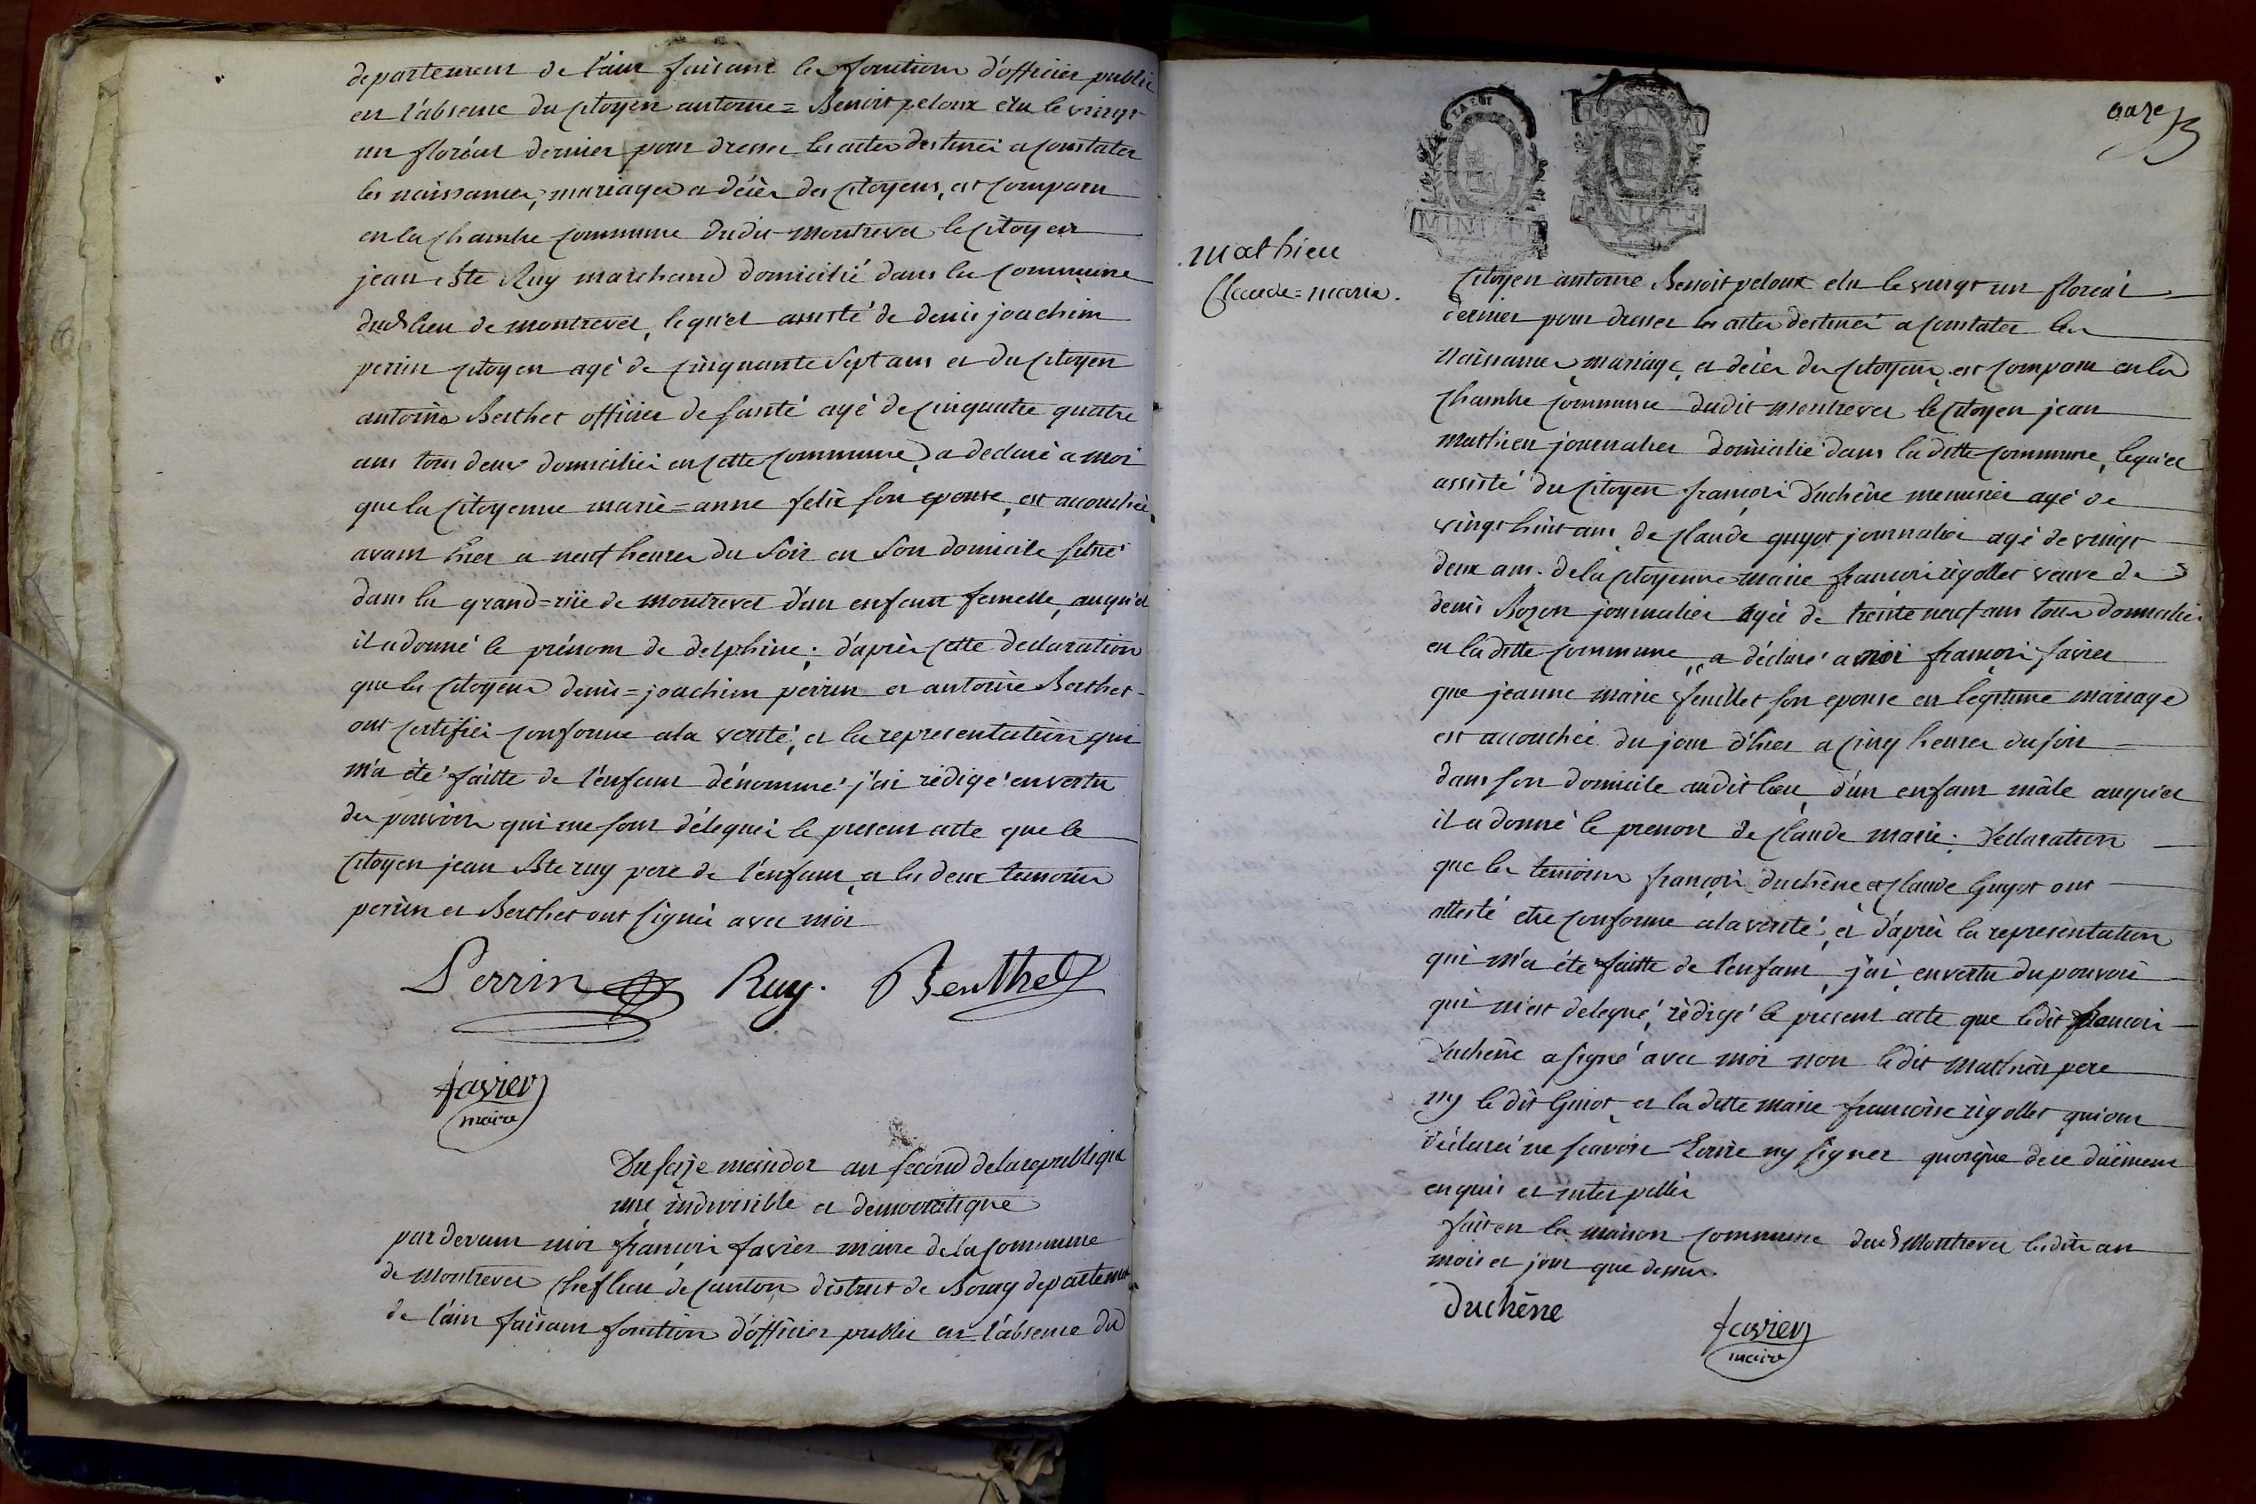 departement de l'ain faisant les fonctions d'officier public
en l'absence du citoyen antoine = Benoit peloux elu le vingt
un floréal dernier pour dresser les actes destinés a constater
les naissances, mariages et décès des citoyens, est comparu
en la chambre commune dudit montrevel le citoyen
jean Bte Ruy marchand domicilié dans la commune
dud. lieu de montrevel, lequel assisté de denis joachim
perrin citoyen agé de cinquante sept ans et du citoyen
antoine Berthet officier de santé agé de cinquante quatre
ans tous deux domiciliés en cette commune, a declaré a moi
que la citoyenne marie = anne felix son epouse, est accouchée
avant hier a neuf heures du soir en son domicile situé
dans la grand = rüe de montrevel d'un enfant femelle, auquel
il a donné le prénom de delphine; d'après cette declaration
que les citoyens denis = joachim perrin et antoine Berthet
ont certifiés conforme a la verité, et la representation qui
m'a été faitte de l'enfant dénommé j'ai rédigé en vertu
des pouvoirs qui me sont délégués le present acte que le
citoyen jean Bte ruy pere de l'enfant, et les deux temoins
perrin et Berthet ont signés avec moi
Perrin Ruy. Berthet
favier
maire
Du seize messidor an second de la republique
une indivisible et democratique
par devant moi françois favier maire de la commune
de montrevel chef lieu de canton district de Bourg departement
de l'ain faisant fonction d'officier public en l'absence du
onze
LA LOI
MINUTE
MINUTE
mathieu
Claude = marie.
citoyen antoine Benoit peloux elu le vingt un floréal
dernier pour dresser les actes destinés a constater les
naissances, mariage, et décès des citoyens, est comparu en la
chambre commune dudit montrevel le citoyen jean
mathieu journalier domicilié dans la ditte commune, lequel
assisté du citoyen françois duchêne menuisier agé de
vingt huit ans, de claude guyot journalier agé de vingt
deux ans. de la citoyenne marie françoise rigollet veuve de
denis Bozon journalier agée de trente neuf ans tous domiciliés
en la ditte commune, a déclaré a moi françois favier
que jeanne marie feuillet son epouse en legitime mariage
est accouchée du jour d'hier a cinq heures du soir
dans son domicile audit lieu, d'un enfant mâle auquel
il a donné le prenom de claude marie; declaration
que les temoins françois duchêne et claude Guyot ont
attesté etre conforme a la verité, et d'après la representation
qui m'a été faitte de l'enfant, j'ai, en vertu du pouvoir
qui m'est delegué, rédigé le present acte que ledit françois
duchêne a signé avec moi non ledit mathieu pere
ny ledit Guiot, et la ditte marie françoise rigollet qui ont
déclaré ne scavoir Ecrire ny signer quoique de ce düement
enquis et interpellés
fait en la maison commune dud. Montrevel lesdits an
mois et jour que dessus.
Duchêne
favier
maire